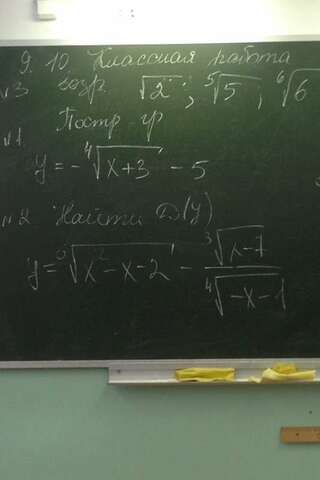 9. 10 Классная работа
№3 возр. √2 ; ⁵√5 ; ⁶√6
№1. Постр. гр
y = - ⁴√x+3 - 5
№2 Найти D(y)
y = ⁶√x²-x-2 - ³√x-7 / ⁴√-x-1